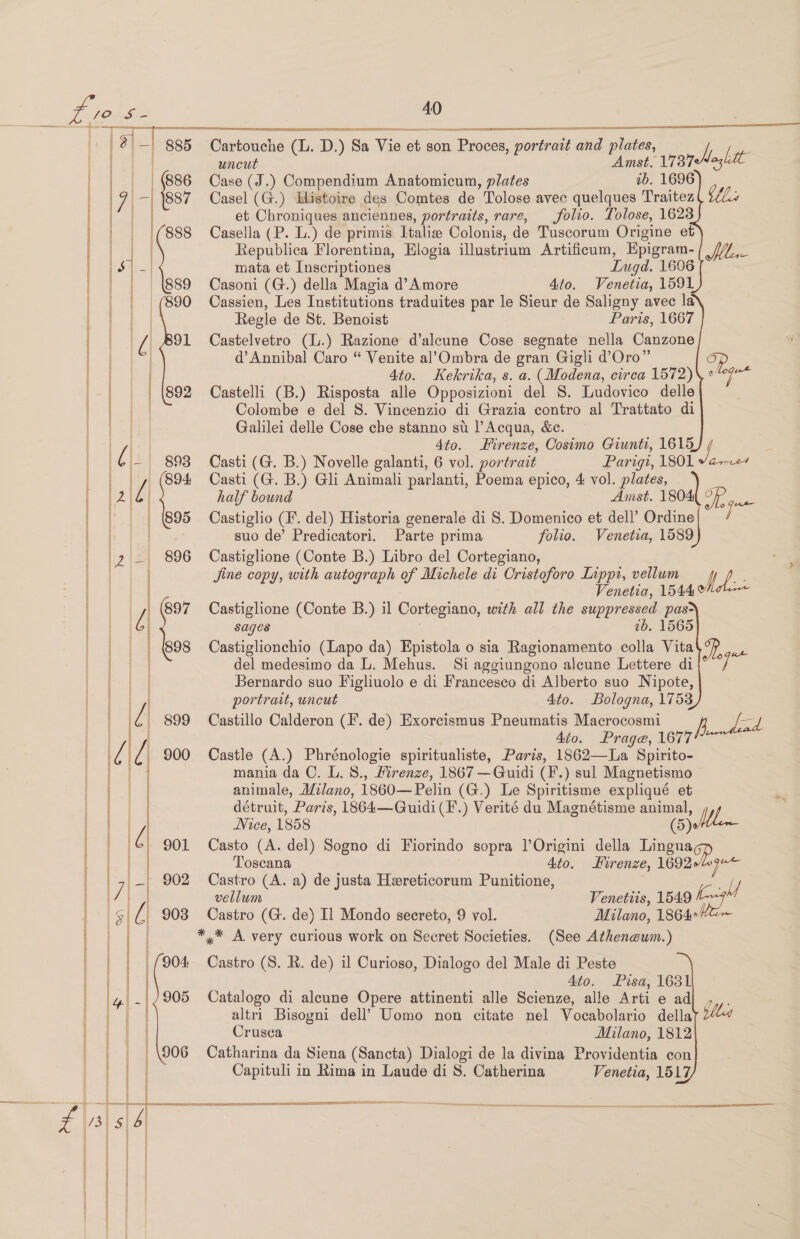 £ 10 5 -
40
8 - 885 Cartouche (L. D.) Sa Vie et son Proces, portrait and plates,
uncut Amst. 1737 Hazlitt
886 Case (J.) Compendium Anatomicum, plates ib. 1696
9 - 887 Casel (G.) Histoire des Comtes de Tolose avec quelques Traitez Ellis
et Chroniques anciennes, portraits, rare, folio. Tolose, 1623
888 Casella (P. L.) de primis Italiæ Colonis, de Tuscorum Origine et
Republica Florentina, Elogia illustrium Artificum, Epigram- Allen
5 - mata et Inscriptiones Lugd. 1606
889 Casoni (G.) della Magia d'Amore 4to. Venetia, 1591
890 Cassien, Les Institutions traduites par le Sieur de Saligny avec la
Regle de St. Benoist Paris, 1667
6 891 Castelvetro (L.) Razione d'alcune Cose segnate nella Canzone
d'Annibal Caro “ Venite al'Ombra de gran Gigli d'Oro”
4to. Kekrika, s. a. (Modena, circa 1572)
892 Castelli (B.) Risposta alle Opposizioni del S. Ludovico delle
Colombe e del S. Vincenzio di Grazia contro al Trattato di
Galilei delle Cose che stanno sù l'Acqua, &c.
4to. Firenze, Cosimo Giunti, 1615
6 - 893 Casti (G. B.) Novelle galanti, 6 vol. portrait Parigi, 1801
894 Casti (G. B.) Gli Animali parlanti, Poema epico, 4 vol. plates,
2 6 half bound Amst. 1804
895 Castiglio (F. del) Historia generale di S. Domenico et dell' Ordine
suo de' Predicatori. Parte prima folio. Venetia, 1589
2 - 896 Castiglione (Conte B.) Libro del Cortegiano,
fine copy, with autograph of Michele di Cristoforo Lippi, vellum
Venetia, 1544
6 897 Castiglione (Conte B.) il Cortegiano, with all the suppressed pas-
sages ib. 1565
898 Castiglionchio (Lapo da) Epistola o sia Ragionamento colla Vita
del medesimo da L. Mehus. Si aggiungono alcune Lettere di
Bernardo suo Figliuolo e di Francesco di Alberto suo Nipote,
portrait, uncut 4to. Bologna, 1753
6 899 Castillo Calderon (F. de) Exorcismus Pneumatis Macrocosmi
4to. Pragæ, 1677
6 6 900 Castle (A.) Phrénologie spiritualiste, Paris, 1862—La Spirito-
mania da C. L. S., Firenze, 1867—Guidi (F.) sul Magnetismo
animale, Milano, 1860—Pelin (G.) Le Spiritisme expliqué et
détruit, Paris, 1864—Guidi (F.) Verité du Magnétisme animal,
Nice, 1858 (5) Allen
6 901 Casto (A. del) Sogno di Fiorindo sopra l'Origini della Lingua
Toscana 4to. Firenze, 1692
7 - 902 Castro (A. a) de justa Hæreticorum Punitione,
vellum Venetiis, 1549 Knight
5 6 903 Castro (G. de) Il Mondo secreto, 9 vol. Milano, 1864 Allen
*** A very curious work on Secret Societies. (See Athenæum.)
904 Castro (S. R. de) il Curioso, Dialogo del Male di Peste
4to. Pisa, 1631
4 - 905 Catalogo di alcune Opere attinenti alle Scienze, alle Arti e ad
altri Bisogni dell' Uomo non citate nel Vocabolario della Ellis
Crusca Milano, 1812
906 Catharina da Siena (Sancta) Dialogi de la divina Providentia con
Capituli in Rima in Laude di S. Catherina Venetia, 1517
£ 13 5 6